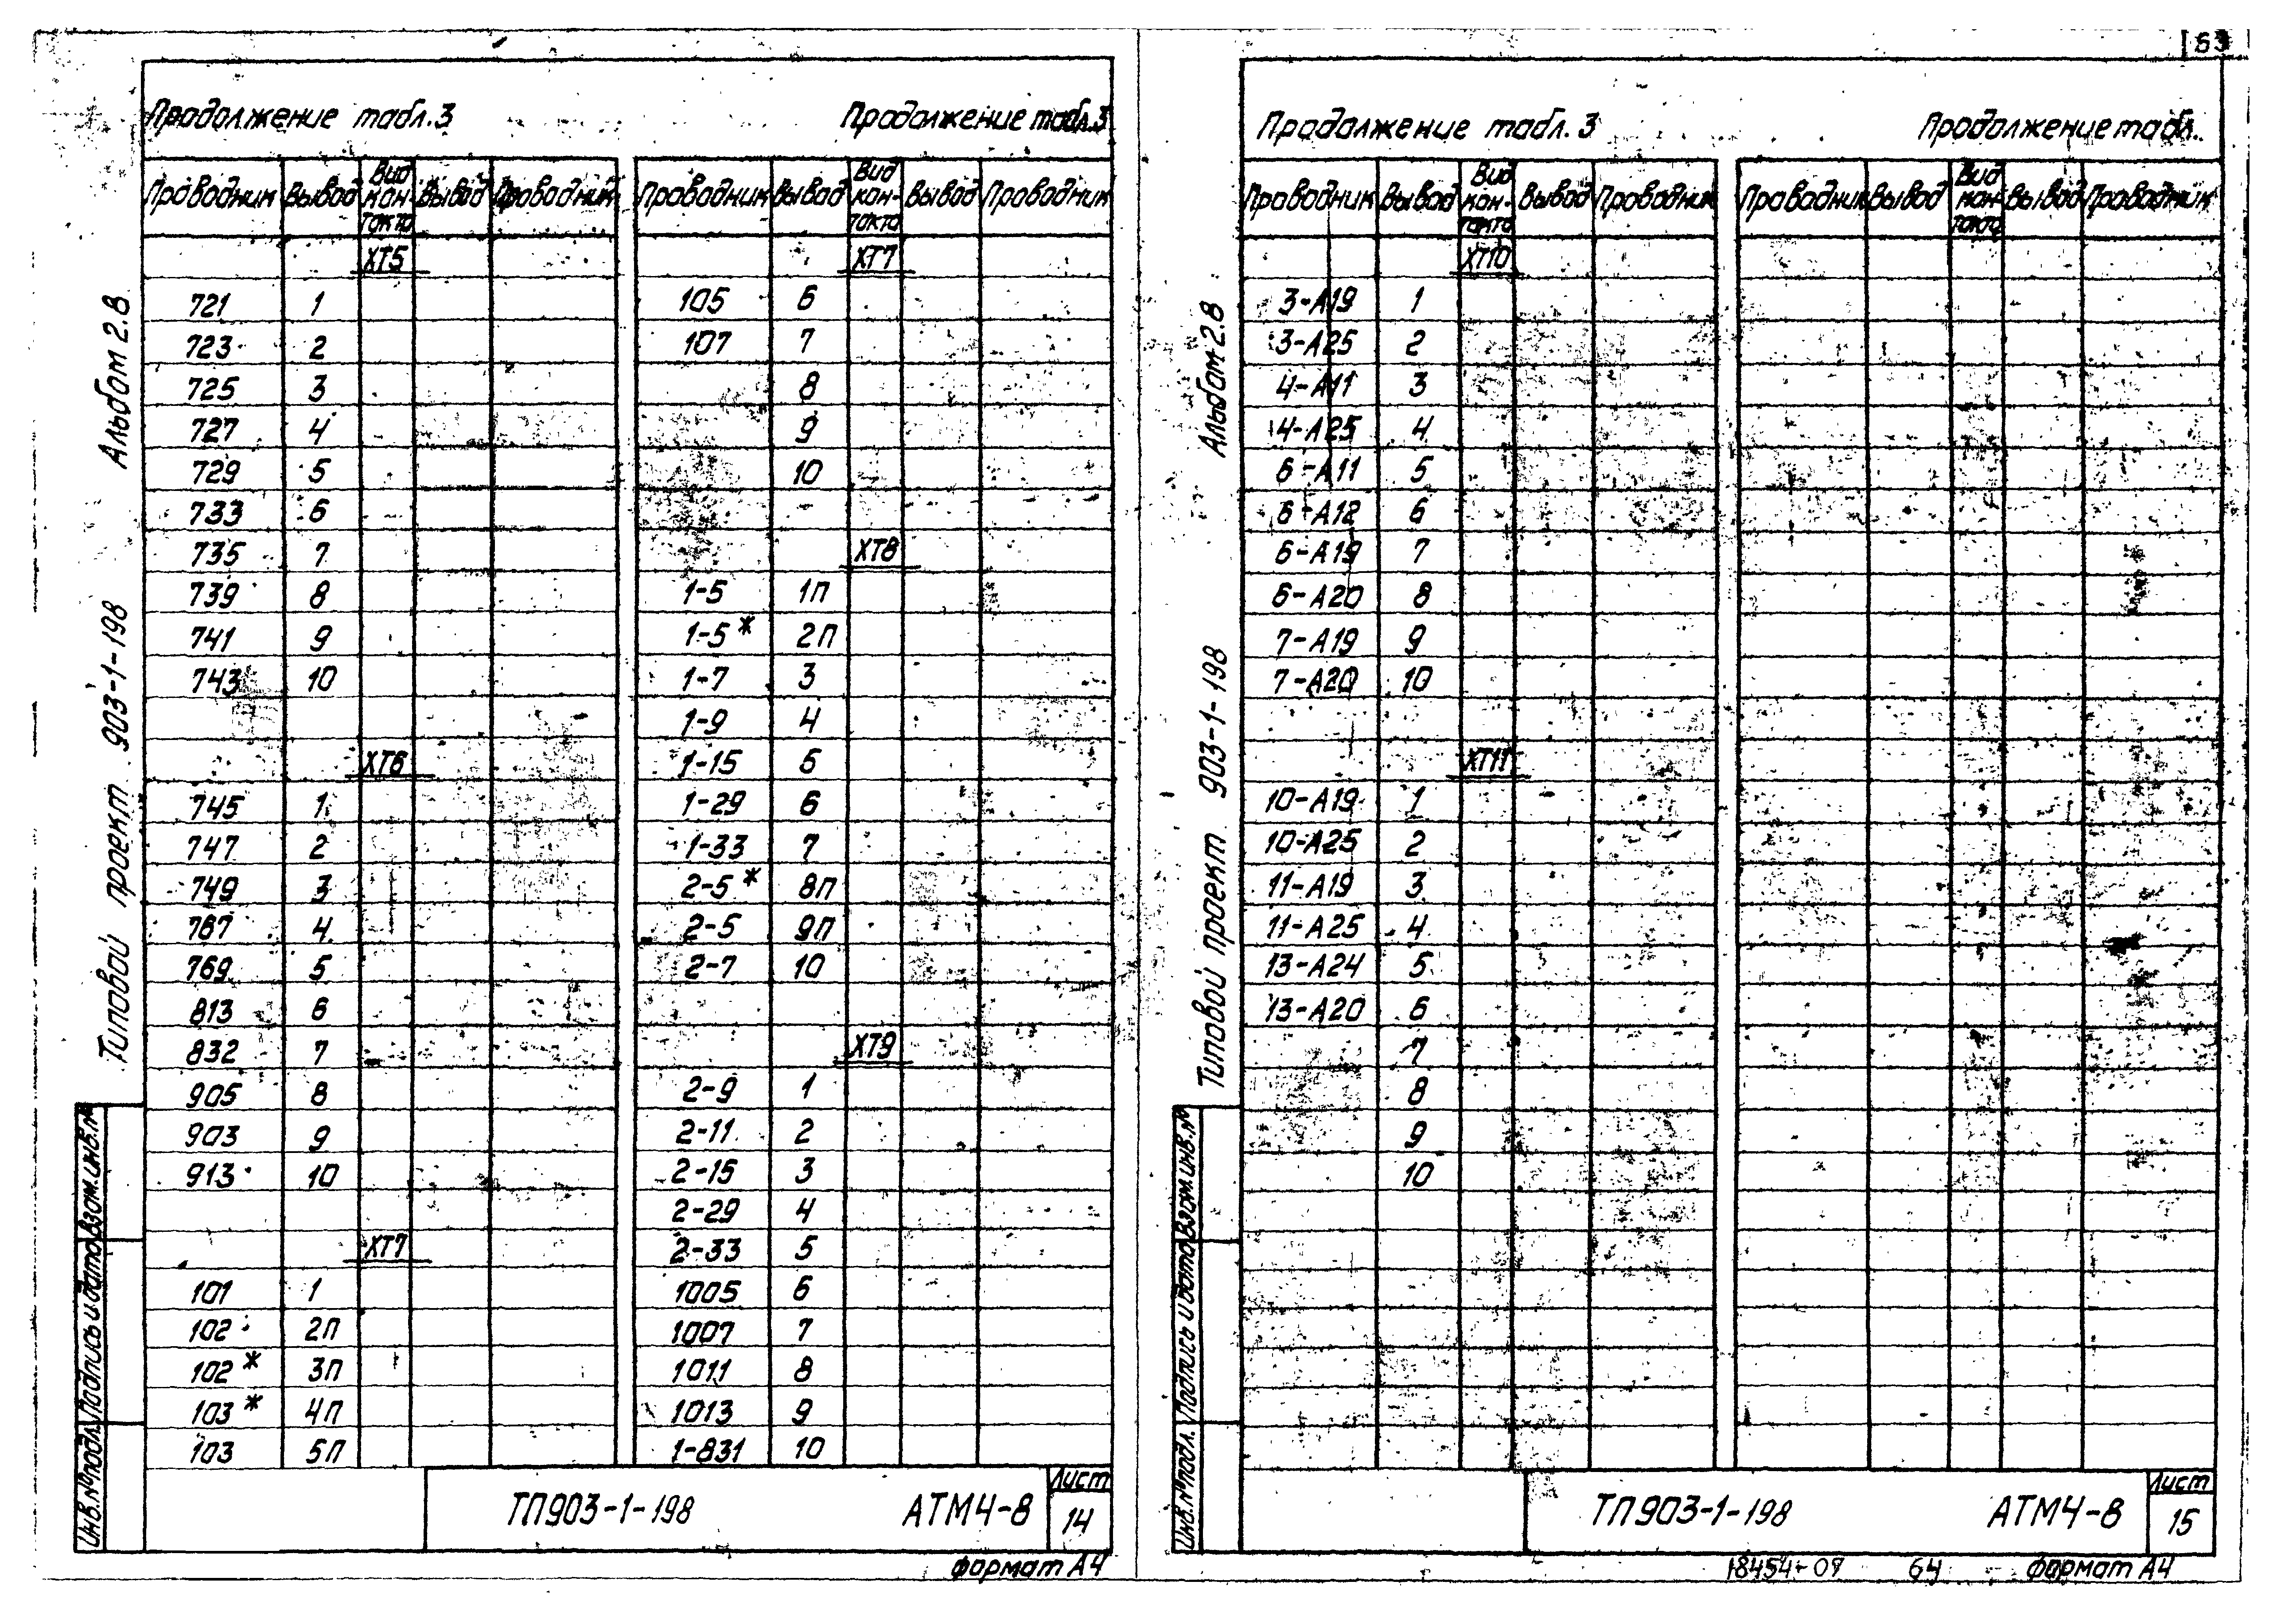 63
Продолжение табл.3
Продолжение табл.3
Проводник Вывод Вид контакта Вывод Проводник
Проводник Вывод Вид контакта Вывод Проводник
ХТ5
721 1
723 2
725 3
727 4
729 5
733 6
735 7
739 8
741 9
743 10
ХТ6
745 1
747 2
749 3
767 4
769 5
813 6
832 7
905 8
903 9
913 10
ХТ7
101 1
102 2П
102* 3П
103* 4П
103 5П
ХТ7
105 6
107 7
8
9
10
ХТ8
1-5 1П
1-5* 2П
1-7 3
1-9 4
1-15 5
1-29 6
1-33 7
2-5* 8П
2-5 9П
2-7 10
ХТ9
2-9 1
2-11 2
2-15 3
2-29 4
2-33 5
1005 6
1007 7
1011 8
1013 9
1-831 10
Альбом 2.8
Типовой проект 903-1-198
Взам.инв.№
Подпись и дата
Инв.№подл.
ТП903-1-198 АТМ4-8
Лист
14
формат А4
Продолжение табл.3
Продолжение табл.
Проводник Вывод Вид контакта Вывод Проводник
Проводник Вывод Вид контакта Вывод Проводник
ХТ10
3-А19 1
3-А25 2
4-А11 3
4-А25 4
6-А11 5
6-А12 6
6-А19 7
6-А20 8
7-А19 9
7-А20 10
ХТ11
10-А19 1
10-А25 2
11-А19 3
11-А25 4
13-А24 5
13-А20 6
7
8
9
10
Альбом 2.8
Типовой проект 903-1-198
Взам.инв.№
Подпись и дата
Инв.№подл.
ТП903-1-198 АТМ4-8
Лист
15
18454-07 64 формат А4